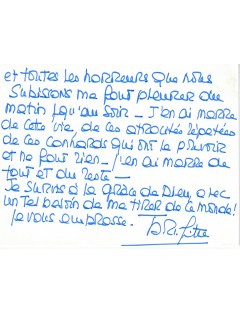 et toutes les horreurs que nous
subissons me font pleurer du
matin jqu'au soir _ J'en ai marre
de cette vie, de ces atrocités répétées
de ces conhards qui ont le pouvoir
et ne font rien _ J'en ai marre de
tout et du reste _
Je survis à la grâce de Dieu, avec
un tel besoin de me tirer de ce monde !
Je vous embrasse.